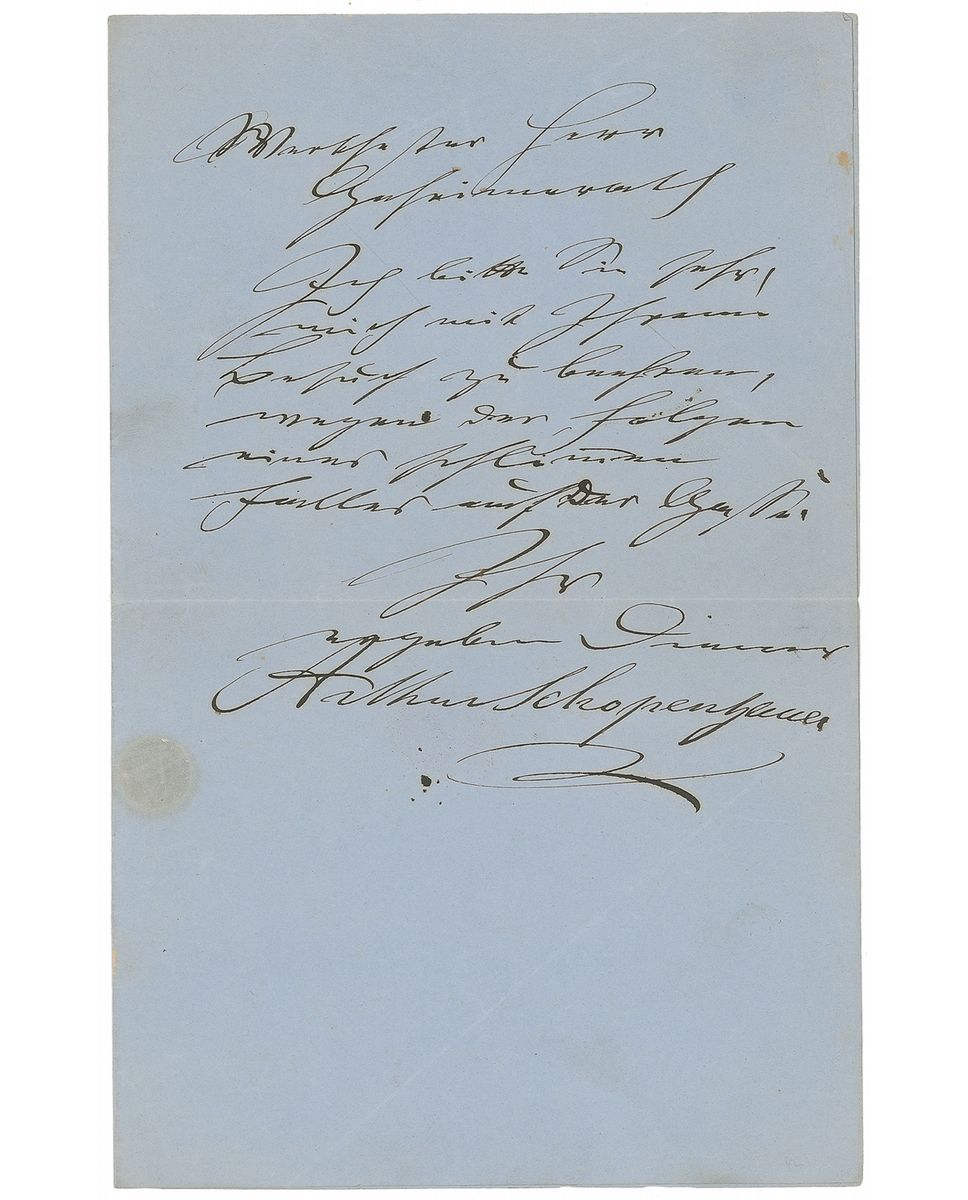 Werthester Herr
Geheimerath
Ich bitte Sie sehr,
mich mit Ihrem
Besuch zu beehren,
wegen der Folgen
eines schlimmen
Falles auf der Gasse.
Ihr
ergebener Diener
Arthur Schopenhauer